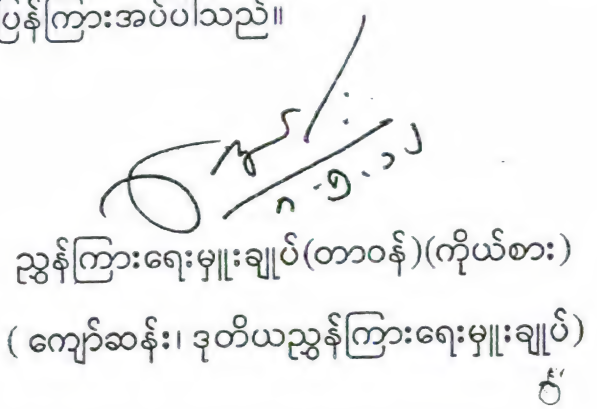 ပြန်ကြားအပ်ပါသည်။
၈.၅.၁၂
ညွှန်ကြားရေးမှူးချုပ်(တာဝန်)(ကိုယ်စား)
( ကျော်ဆန်း၊ ဒုတိယညွှန်ကြားရေးမှူးချုပ်)